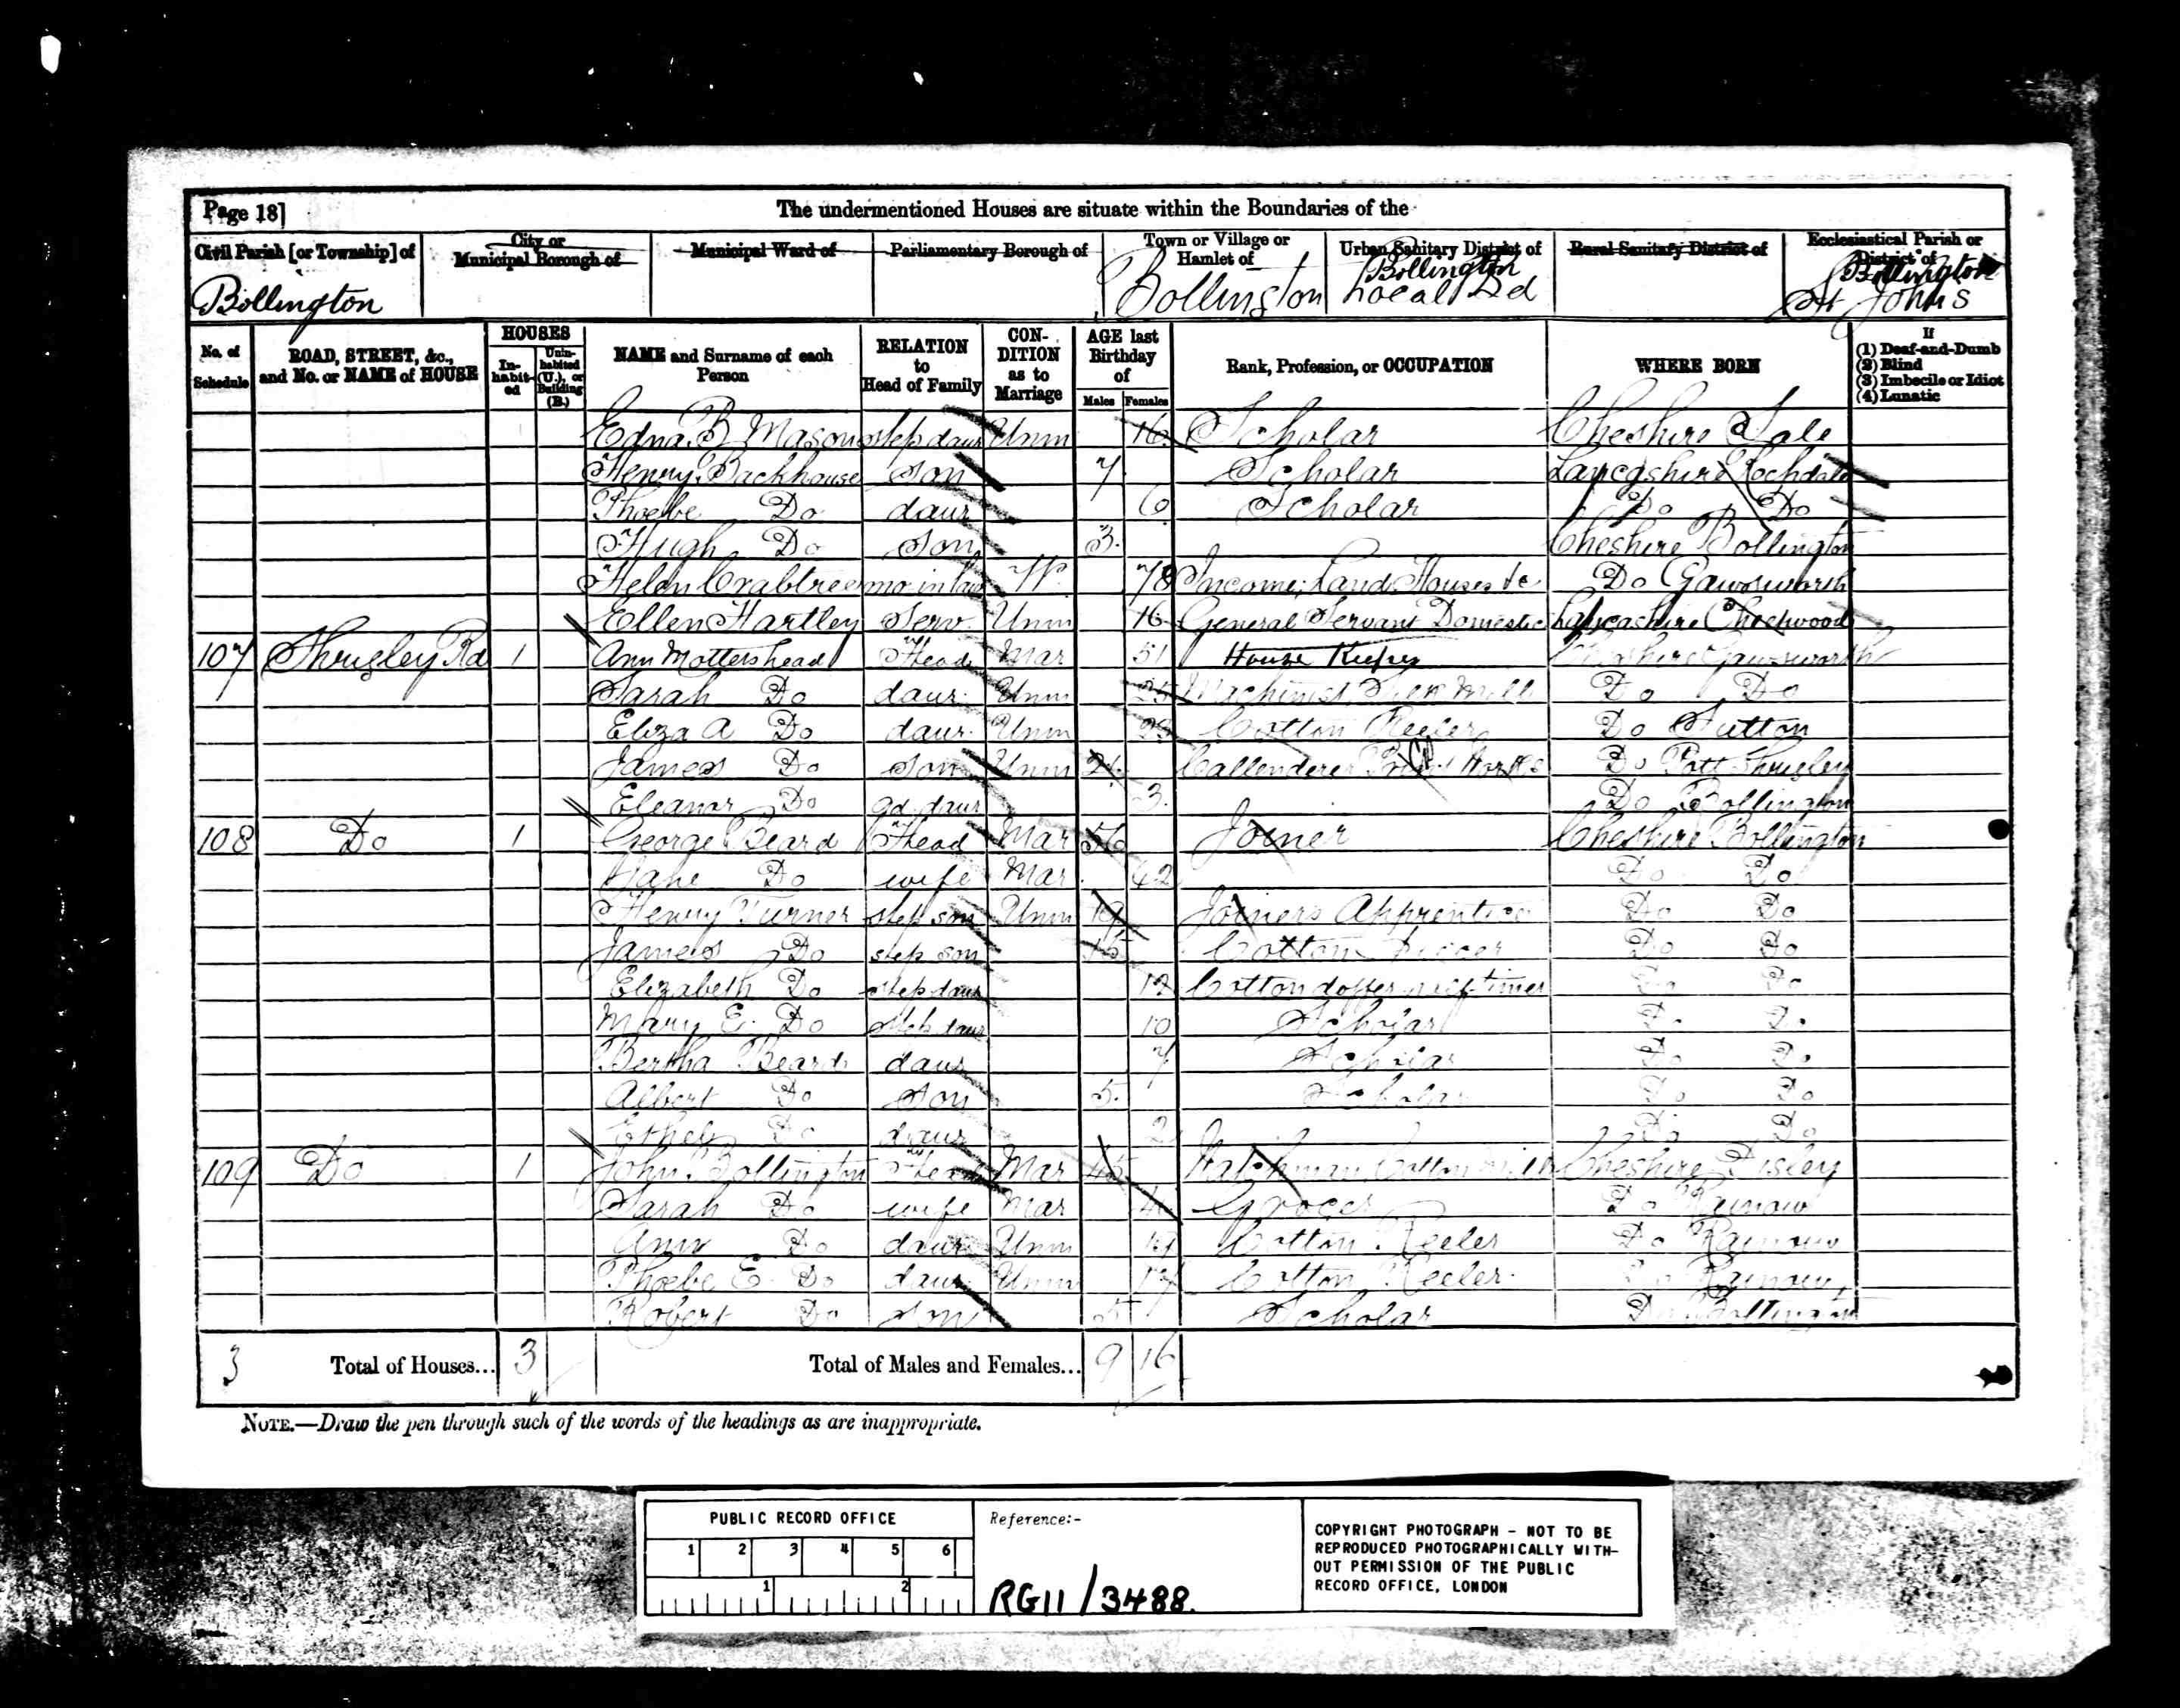 Page 18]
The undermentioned Houses are situate within the Boundaries of the
Civil Parish [or Township] of
City or Municipal Borough of
Municipal Ward of
Parliamentary Borough of
Town or Village or Hamlet of
Urban Sanitary District of
Rural Sanitary District of
Ecclesiastical Parish or District of
Bollington
Bollington
Bollington Local Bd
Bollington St Johns
No. of Schedule
ROAD, STREET, &c., and No. or NAME of HOUSE
HOUSES
In-habit-ed
Unin-habited (U.), or Building (B.)
NAME and Surname of each Person
RELATION to Head of Family
CON-DITION as to Marriage
AGE last Birthday of
Males
Females
Rank, Profession, or OCCUPATION
WHERE BORN
If
(1) Deaf-and-Dumb
(2) Blind
(3) Imbecile or Idiot
(4) Lunatic
Edna B Mason step daur Unm 16 Scholar Cheshire Sale
Henry Backhouse son 7 Scholar Lancashire Rochdale
Phoebe Do daur 6 Scholar Do Do
Hugh Do son 3 Cheshire Bollington
Helen Crabtree mo in law W 78 Income; Land Houses &c Do Gawsworth
Ellen Hartley Serv Unm 16 General Servant Domestic Lancashire
107 Shrigley Rd 1 Ann Mottershead Head Mar 51 House Keeper Cheshire Gawsworth
Sarah Do daur Unm 25 Machinist Silk Mill Do Do
Eliza A Do daur Unm Cotton Reeler Do Sutton
James Do son Unm 21 Callenderer Works Do Pott Shrigley
Eleanor Do gd daur 3 Do Bollington
108 Do 1 George Beard Head Mar 56 Joiner Cheshire Bollington
Jane Do wife Mar 42 Do Do
Henry Turner step son Unm 19 Joiners Apprentice Do Do
James Do step son 15 Cotton Piecer Do Do
Elizabeth Do step daur 12 Cotton doffer half-timer Do Do
Mary E. Do step daur 10 Scholar Do Do
Bertha Beard daur 7 Scholar Do Do
Albert Do son 5 Scholar Do Do
Ethel Do daur 2 Do Do
109 Do 1 John Bollington Head Mar 45 Watchman Cotton Mill Cheshire Disley
Sarah Do wife Mar Grocer Do Rainow
Ann Do daur Unm 19 Cotton Reeler Do Rainow
Phoebe E. Do daur Unm 17 Cotton Reeler Do Rainow
Robert Do son 5 Scholar Do Bollington
3 Total of Houses... 3 Total of Males and Females... 9 16
NOTE.—Draw the pen through such of the words of the headings as are inappropriate.
PUBLIC RECORD OFFICE
1 2 3 4 5 6
1 2
Reference:-
RG11/3488
COPYRIGHT PHOTOGRAPH - NOT TO BE
REPRODUCED PHOTOGRAPHICALLY WITH-
OUT PERMISSION OF THE PUBLIC
RECORD OFFICE, LONDON